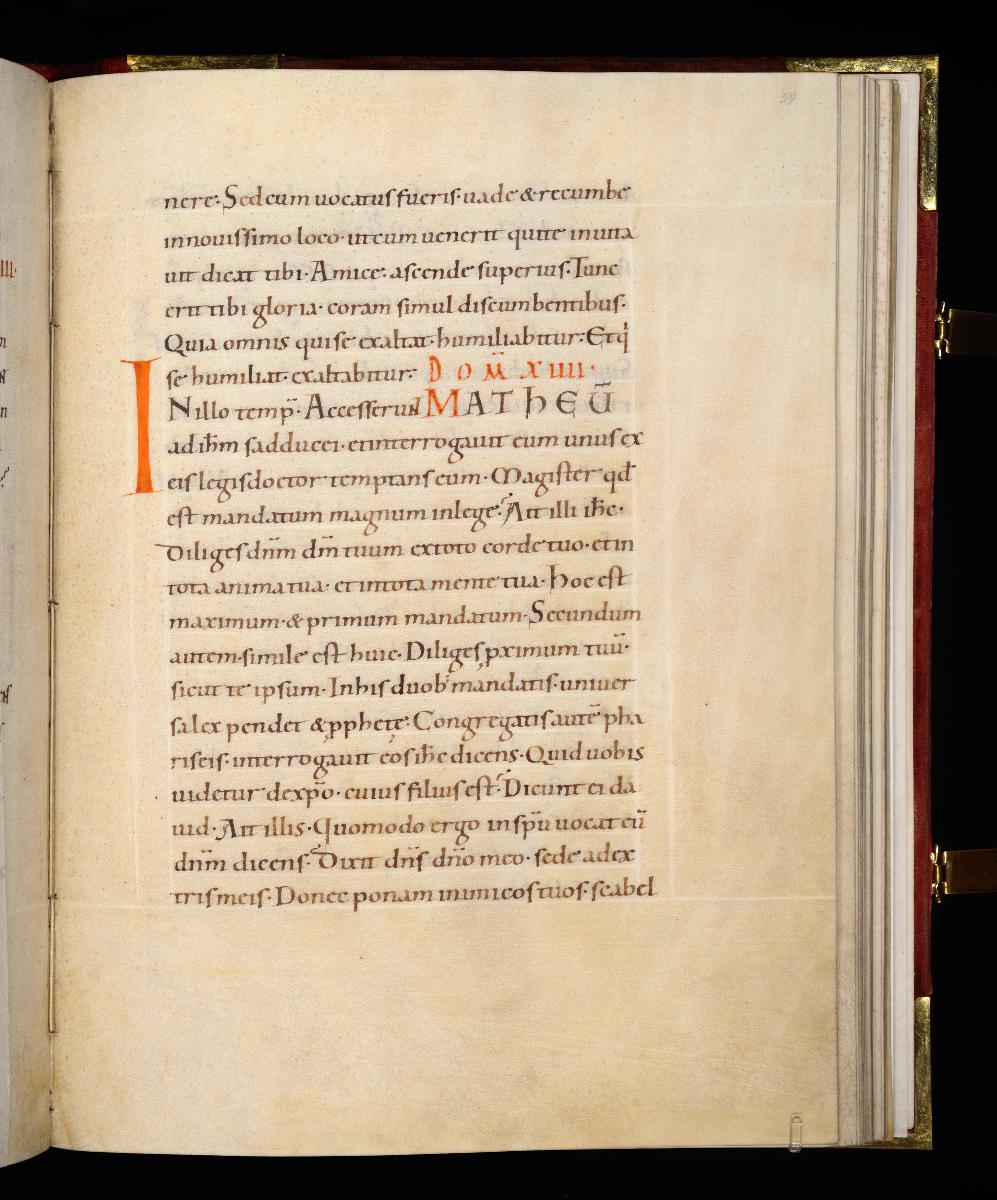 59
nere. Sed cum uocatus fueris. uade & recumbe
in nouissimo loco. ut cum uenerit qui te inuita
uit dicat tibi. Amice. ascende superius. Tunc
erit tibi gloria. coram simul discumbentibus.
Quia omnis qui se exaltat. humiliabitur. Et q
se humiliat. exaltabitur. DOM̅ XIIII.
INillo temp̅. Accesserunt MATHEU̅
ad ih̅m sadducei. et interrogauit eum unus ex
eis legis doctor temptans eum. Magister qd̅
est mandatum magnum in lege? Ait illi ih̅c.
Diliges dn̅m dm̅ tuum ex toto corde tuo. et in
tota anima tua. et in tota mente tua. Hoc est
maximum. & primum mandatum. Secundum
autem. simile est huic. Diliges ꝓximum tuu̅.
sicut te ipsum. In his duob; mandatis. uniuer
sa lex pendet & ꝓphetę. Congregatis aute̅ pha
riseis. interrogauit eos ih̅c dicens. Quid uobis
uidetur de xp̅o. cuius filius est? Dicunt ei da
uid. Ait illis. Quomodo ergo in sp̅u uocat eu̅
dn̅m dicens. Dixit dn̅s dn̅o meo. sede a dex
tris meis. Donec ponam inimicos tuos. scabel